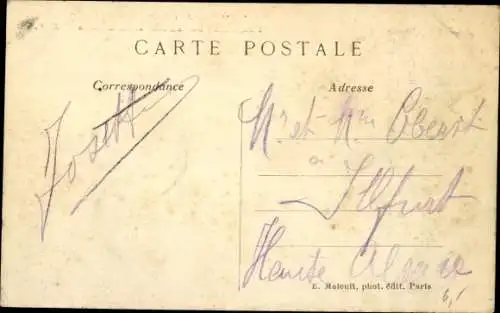 CARTE POSTALE
Correspondance
Adresse
Josette
Mr et Mme Oberst
à
Illfurt
Haute Alsace
E. Maleuit, phot. édit. Paris